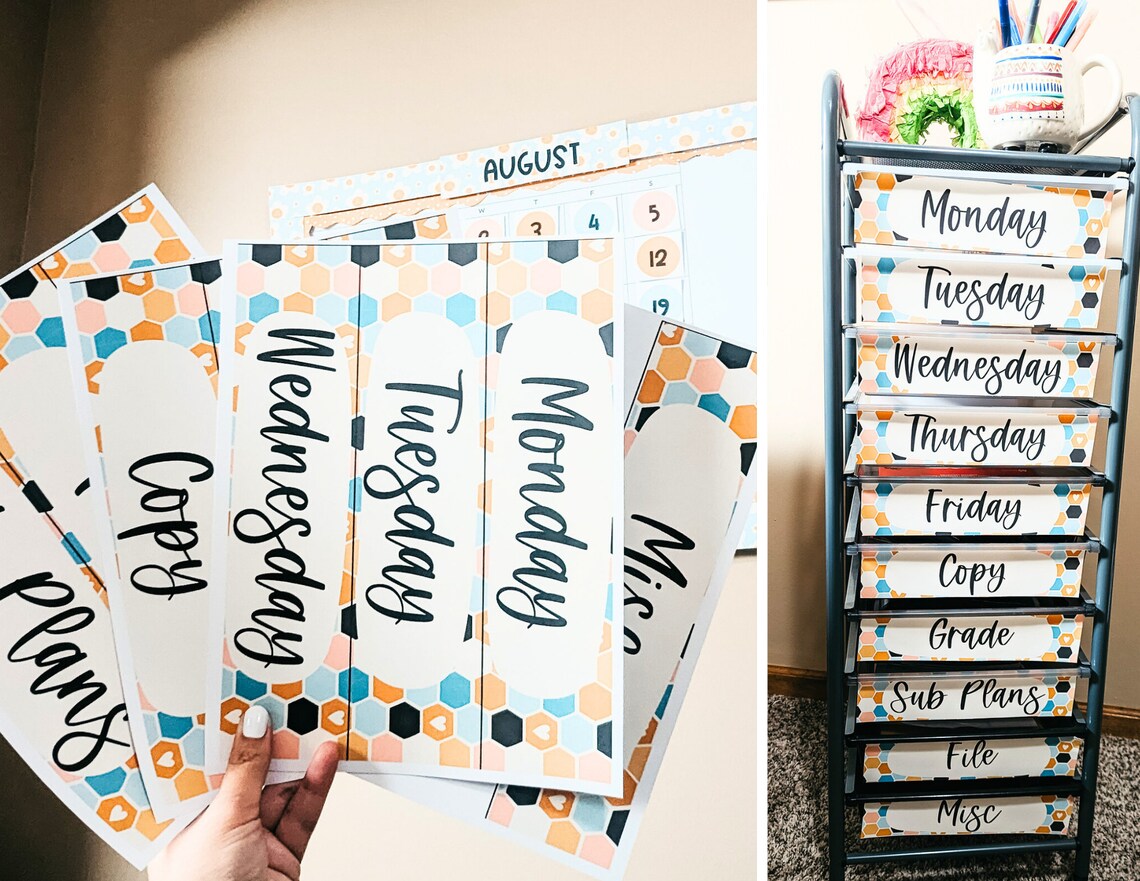 AUGUST
W T F S
2 3 4 5
12
19
Plans
Copy
Wednesday
Tuesday
Monday
Misc
Monday
Tuesday
Wednesday
Thursday
Friday
Copy
Grade
Sub Plans
File
Misc